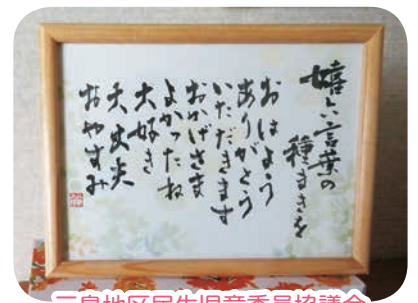 嬉しい言葉の
種まきを
おはよう
ありがとう
いただきます
おかげさま
よかったね
大好き
大丈夫
おやすみ
三島地区民生児童委員協議会